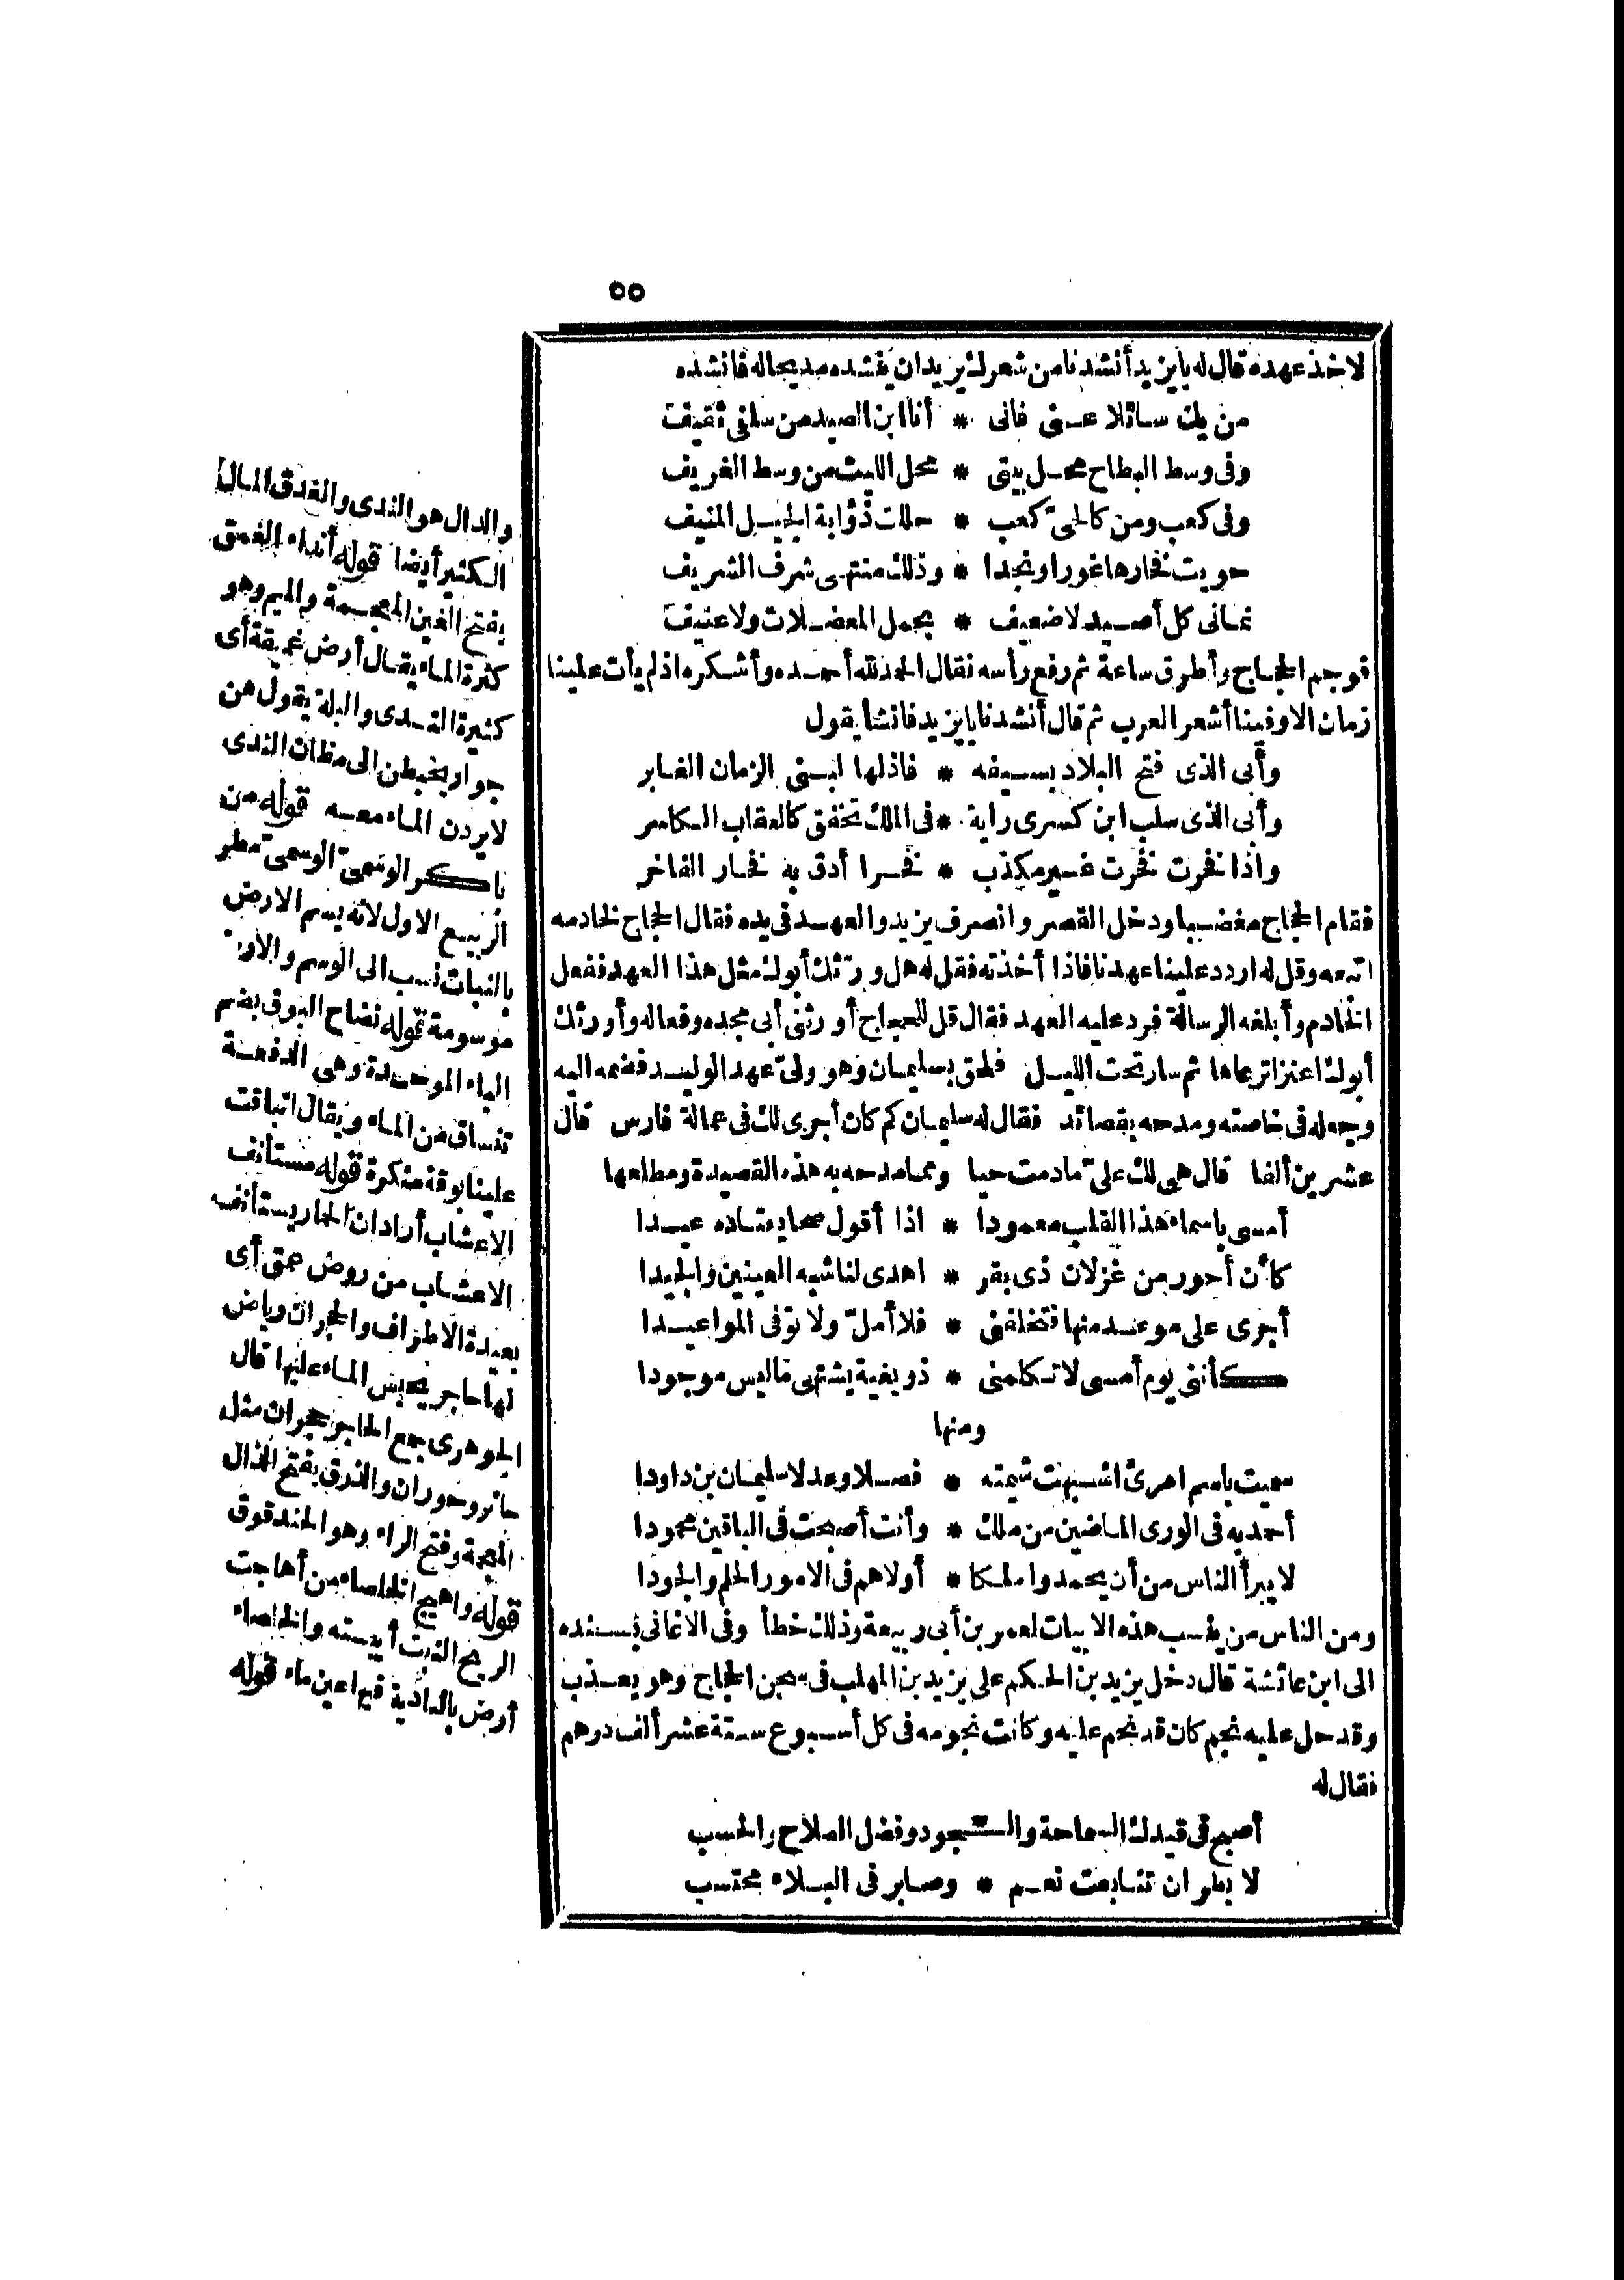 ٥٥
لاخذ عهده قال له يا يزيد أنشدنا من شعرك يريد ان ينشده مديحا له فانشده
من يك سائلا عـنى فانى * أنا ابن الصيد من سلفى ثقيف
وفى وسط البطاح محـل بيتى * محل الليث من وسط الغريف
وفى كعب ومن كالحىّ كعب * حللت ذؤابة الجبـل المنيف
حويت فخارها غورا ونجدا * وذلك منتهـى شرف الشريف
نمـانى كل أصـيد لا ضعيف * بحمل المعضـلات ولا عنيف
فوجم الحجـاج وأطرق ساعة ثم رفع رأسه فقال الحمد لله أحمـده وأشـكره اذ لم يأت علينا
زمان الا وفينا أشعر العرب ثم قال أنشدنا يا يزيد فانشأ يقول
وأبى الذى فتح البلاد بسـيفه * فاذلها لبـنى الزمان الغـابر
وأبى الذى سلب ابن كسرى راية * فى الملك تخفق كالعقاب الـكاسر
واذا فخرت فخرت غـير مكذب * فخـرا أدق به فخـار الفاخر
فقام الحجاج مغضـبا ودخل القصر وانصرف يزيد والعهـد فى يده فقال الحجاج لخادمه
اتبعه وقل له اردد علينا عهدنا فاذا أخذته فقل له هل ورّثك أبوك مثل هذا العهد ففعل
الخادم وأبلغه الرسالة فرد عليه العهد فقال قل للحجاج أورثنى أبى مجده وفعاله وأورثك
أبوك اعنزا ترعاها ثم سار تحت الليـل فلحق بسليمـان وهو ولىّ عهد الوليـد فضمه اليه
وجعله فى خاصته ومدحه بقصائد فقال له سليمـان كم كان أجرى لك فى عمالة فارس قال
عشرين ألفا قال هى لك علىّ ما دمت حيا ومما مدحه به هذه القصيدة ومطلعها
أمسى باسماء هذا القلب معمودا * اذا أقول صحا يعتـاده عيـدا
كأن أحور من غزلان ذى بقر * اهدى لنا شبه العينين والجيدا
أجرى على موعـد منها فتخلفنى * فلا أملّ ولا توفى المواعيـدا
كأننى يوم أمسى لا تـكلمنى * ذو بغية يشتهـى ما ليس موجودا
ومنها
سميت باسم امرئ اشـبهت شيمته * فضـلا وعدلا سليمـان بن داودا
أحمد به فى الورى المـاضين من ملك * وأنت أصبحت فى الباقين محمودا
لا يبرأ الناس من أن يحمدوا ملـكا * أولاهم فى الامور الحلم والجودا
ومن الناس من ينسب هذه الابيات لعمر بن أبى ربيعة وذلك خطأ وفى الاغانى بسـنده
الى ابن عائشة قال دخل يزيد بن الحـكم على يزيد بن المهلب فى سجن الحجاج وهو يعـذب
وقد حل عليه نجم كان قد نجم عليه وكانت نجومه فى كل أسـبوع سـتة عشر ألف درهم
فقال له
أصبح فى قيدك السماحة والـجود وفضل الصلاح والحسب
لا بطر ان تتـابعت نعـم * وصـابر فى البـلاء محتسب
والدال هو الندى والغدق المـال
الـكثير أيضا قوله أنداء الغمق
بفتح الغين المعجـمة والميم وهو
كثرة المـاء يقـال أرض غمقة أى
كثيرة النـدى والبلة يقول هن
جوار يخبطن الى مظان الندى
لا يردن المـاء معـه قوله من
باكـر الوسمىّ الوسمىّ مطر
الربيـع الاول لانه يسم الارض
بالنبات نسب الى الوسم والارض
موسومة قوله نضاح البوق بضم
الباء الموحـدة وهى الدفعـة
تنساق من المـاء ويقال انباقت
علينا بوقة منكرة قوله مستأنف
الاعشاب أراد ان الحمار يستأنف
الاعشـاب من روض عمق أى
بعيدة الاطراف والحجران رياض
لها حاجر يحبس المـاء عليها قال
الجوهرى جمع الحاجر حجران مثل
حائر وحوران والذرق بفتح الذال
المعجمة وفتح الراء وهو الحندقوق
قوله واهيج الخلصاء من أهاجت
الريح النبت أيبسته والخلصاء
أرض بالبادية فيها عين ماء قوله